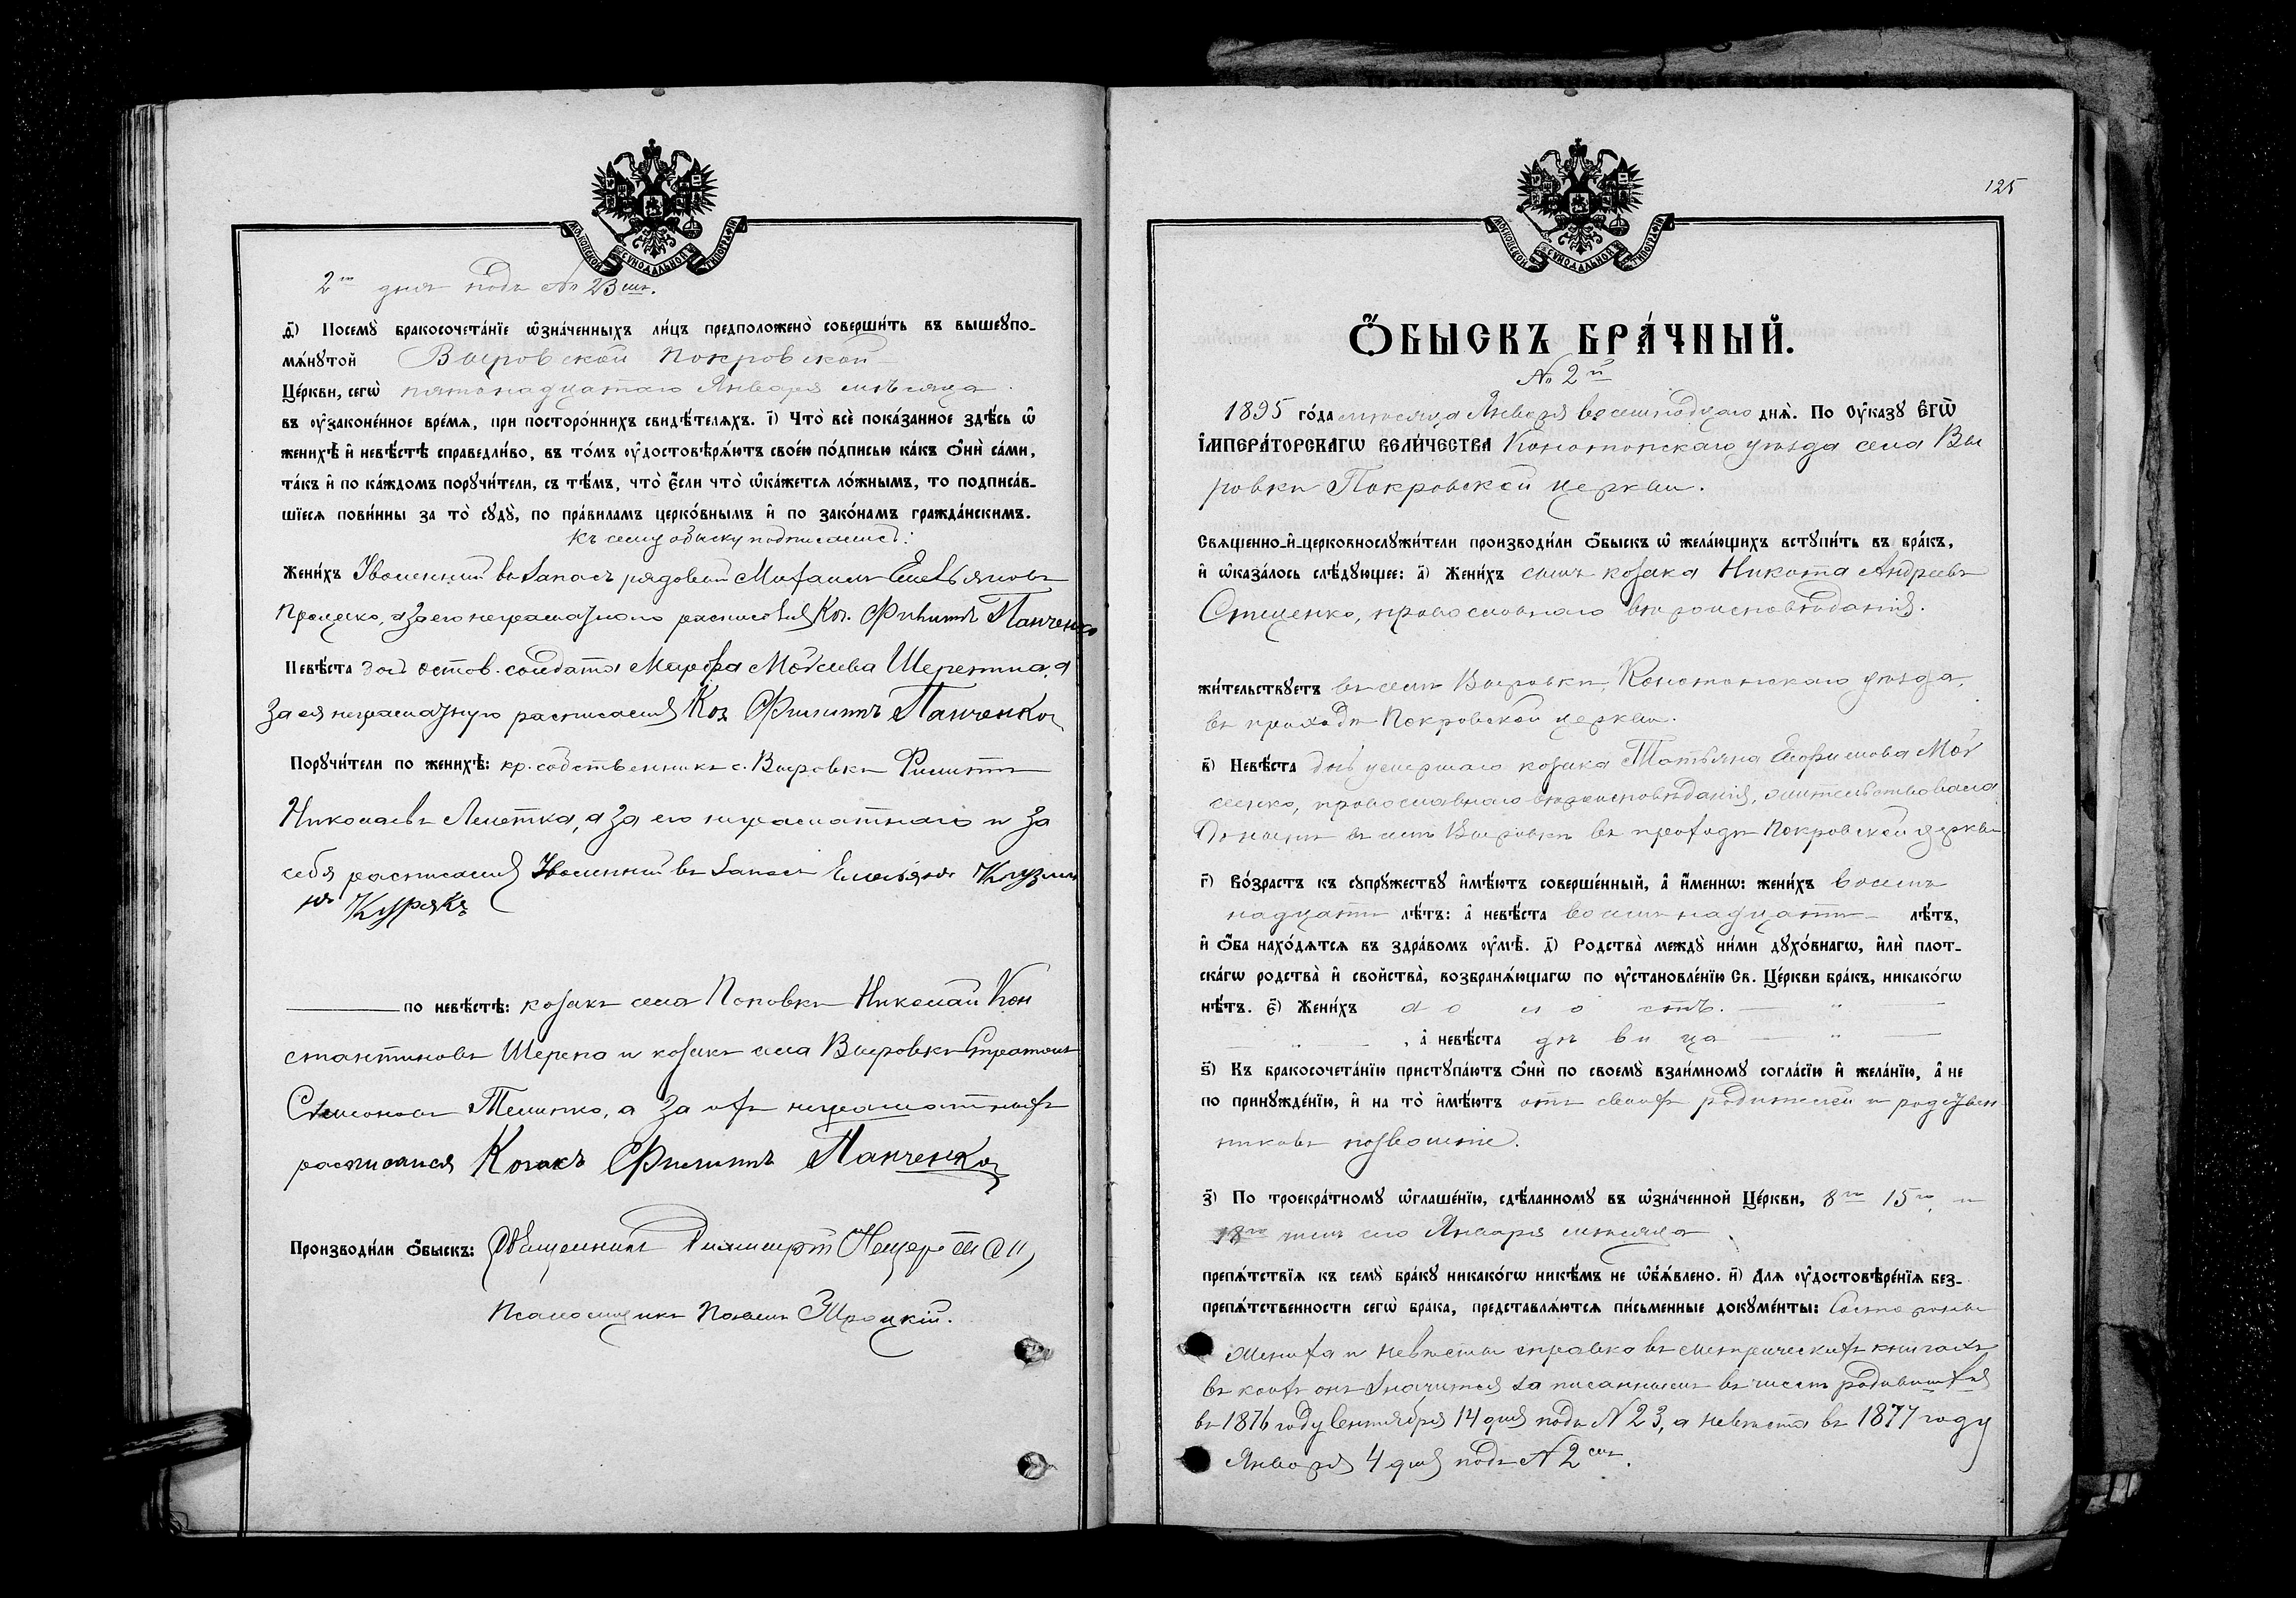 МОСКОВСКОЙ СУНОДАЛЬНОЙ ТИПОГРАФІИ
2го дня подъ № 23имъ.
д҃) Посемꙋ̀ бракосочета́нїе ѡ҆зна́ченныхъ ли́цъ предположено̀ соверши́ть въ вышеꙋпо-
мѧ́нꙋтой Выровской Покровской
Це́ркви, сегѡ̀ пятонадцатаго Января мѣсяца
въ ᲂу҆законе́нное вре́мѧ, при посторо́ннихъ свидѣ́телѧхъ. і҃) Что̀ всѐ пока́занное здѣ́сь ѡ҆
женихѣ̀ и҆ невѣ́стѣ справедли́во, въ то́мъ ᲂу҆достовѣрѧ́ютъ свое́ю по́дписью ка́къ ѻ҆нѝ са́ми,
та́къ и҆ по ка́ждомъ порꙋчи́тели, съ тѣ́мъ, что̀ є҆́сли что̀ ѡ҆ка́жетсѧ ло́жнымъ, то подписа́в-
шїесѧ пови́нны за то̀ сꙋдꙋ̀, по пра́виламъ церко́внымъ и҆ по зако́намъ гражда́нскимъ.
Къ сему обыску подписались:
Жени́хъ Уволенный въ запасъ рядовой Михаилъ Емельяновъ
а за его неграмотного расписался Коз. Филиппъ Панченко
Невѣ́ста дочь остов. солдата Марфа Моѵсеева а
за ея неграмотную расписался Коз. Филиппъ Панченко
Порꙋчи́тели по женихѣ̀: кр. собственникъ с. Выровки Филиппъ
Николаевъ а за его неграмотнаго и за
себя расписался Уволенный въ запасъ Емельянъ Кузьми
нъ Куряка
по невѣ́стѣ: козакъ села Поповки Николай Кон
стантиновъ Шерепа и козакъ села Выровки
а за ихъ неграмотныхъ
расписался Козакъ Филиппъ Панченко
Производи́ли ѻ҆́быскъ: Священникъ Димитрій
Псаломщикъ
125
МОСКОВСКОЙ СУНОДАЛЬНОЙ ТИПОГРАФІИ
Ѻ҆́БЫСКЪ БРА́ЧНЫЙ.
№ 2й
1895 го́да мѣсяца Января восемнадцаго днѧ̀. По ᲂу҆ка́зꙋ Є҆ГѠ̀
І҆МПЕРА́ТОРСКАГѠ ВЕЛИ́ЧЕСТВА Конотопскаго уѣзда села Вы
ровки Покровской церкви.
Свѧще́нно-и҆-церковнослꙋжи́тели производи́ли ѻ҆́быскъ ѡ҆ жела́ющихъ встꙋпи́ть въ бра́къ,
и҆ ѡ҆каза́лось слѣ́дꙋющее: а҃) Жени́хъ сынъ козака Никита Андреевъ
Стеценко, православнаго вѣроисповѣданія.
жи́тельствꙋетъ въ селѣ Выровкѣ, Конотопскаго уѣзда,
въ приходѣ Покровской церкви.
в҃) Невѣ́ста дочь умершаго козака Татьяна Ефимова Моѵ
сеенко, православнаго вѣроисповѣданія, жительствовала
донынѣ въ селѣ Выровкѣ въ приходѣ Покровской церкви
г҃) Во́зрастъ къ сꙋпрꙋ́жествꙋ и҆мѣ́ютъ соверше́нный, а҆ и҆́меннѡ: жени́хъ восем
надцати лѣ́тъ: а҆ невѣ́ста восемнадцати лѣ́тъ,
и҆ ѻ҆́ба нахо́дѧтсѧ въ здра́вомъ ᲂу҆мѣ̀. д҃) Родства̀ междꙋ̀ ни́ми дꙋхо́внагѡ, и҆лѝ плот-
ска́гѡ родства̀ и҆ сво́йства̀, возбранѧ́ющагѡ по ᲂу҆становле́нїю Св. Це́ркви бра́къ, никако́гѡ
нѣ́тъ. є҃) Жени́хъ холостъ. — " —
— " —, а҆ невѣ́ста дѣвица — " —
ѕ҃) Къ бракосочета́нїю пристꙋпа́ютъ ѻ҆нѝ по своемꙋ̀ взаи́мномꙋ согла́сїю и҆ жела́нїю, а҆ не
по принꙋжде́нїю, и҆ на то̀ и҆мѣ́ютъ отъ своихъ родителей и родствен
никовъ позволеніе.
з҃) По троекра́тномꙋ ѡ҆глаше́нїю, сдѣ́ланномꙋ въ ѡ҆зна́ченной Це́ркви, 8го 15го и
18го числъ сего Января мѣсяца
препѧ́тствїѧ къ семꙋ̀ бра́кꙋ никако́гѡ никѣ́мъ не ѡ҆б̾ѧ́влено. и҃) Длѧ ᲂу҆достовѣре́нїѧ без-
препѧ́тственности сегѡ̀ бра́ка, представлѧ́ютсѧ пи́сьменные докꙋме́нты: Со стороны
жениха и невѣсты справка въ метрическихъ книгахъ
въ коихъ онъ значится записаннымъ въ числѣ родившихся
въ 1876 году Сентября 14 дня подъ № 23, а невѣста въ 1877 году
Января 4 дня подъ № 2мъ.